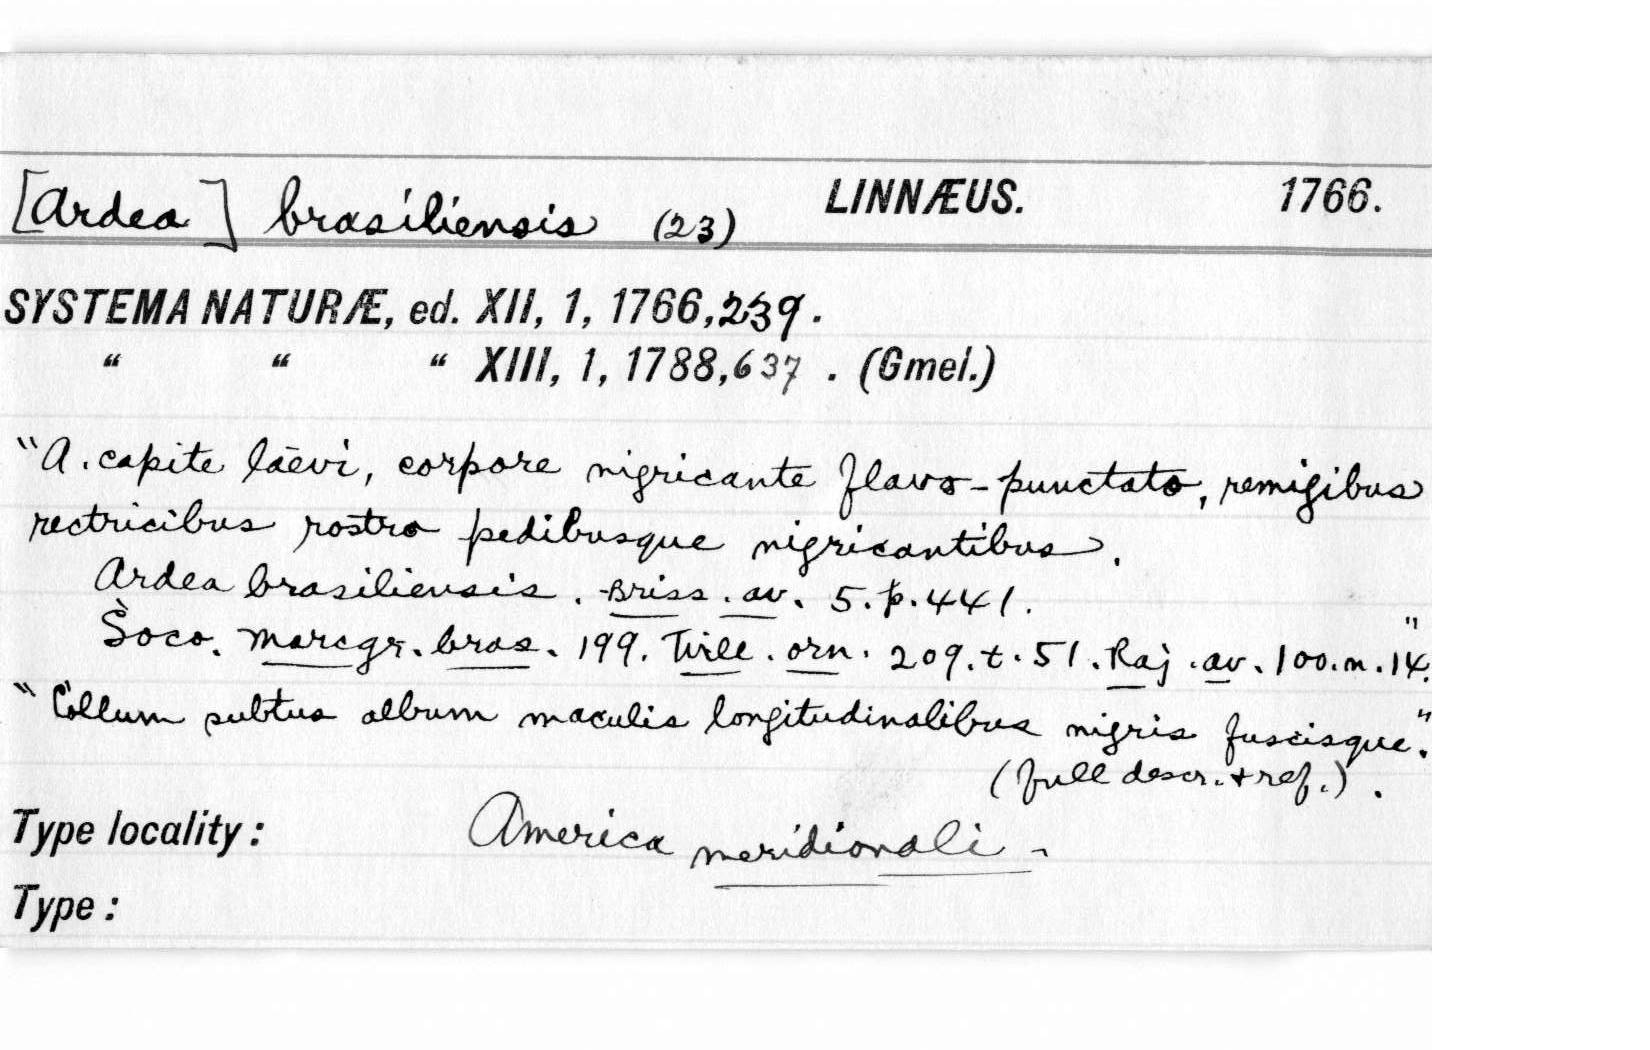 [Ardea] brasiliensis (23) LINNÆUS. 1766.
SYSTEMA NATURÆ, ed. XII, 1, 1766, 239.
" " " XIII, 1, 1788, 637. (Gmel.)
"A. capite lāevi, corpore nigricante flavo-punctato, remigibus
rectricibus rostro pedibusque nigricantibus.
Ardea brasiliensis. Briss. av. 5. p. 441.
Soco. Marcgr. bras. 199. Will. orn. 209. t. 51. Raj. av. 100. n. 14."
"Collum subtus album maculis longitudinalibus nigris fuscisque."
(full descr. + ref.).
Type locality: America meridionali-
Type: